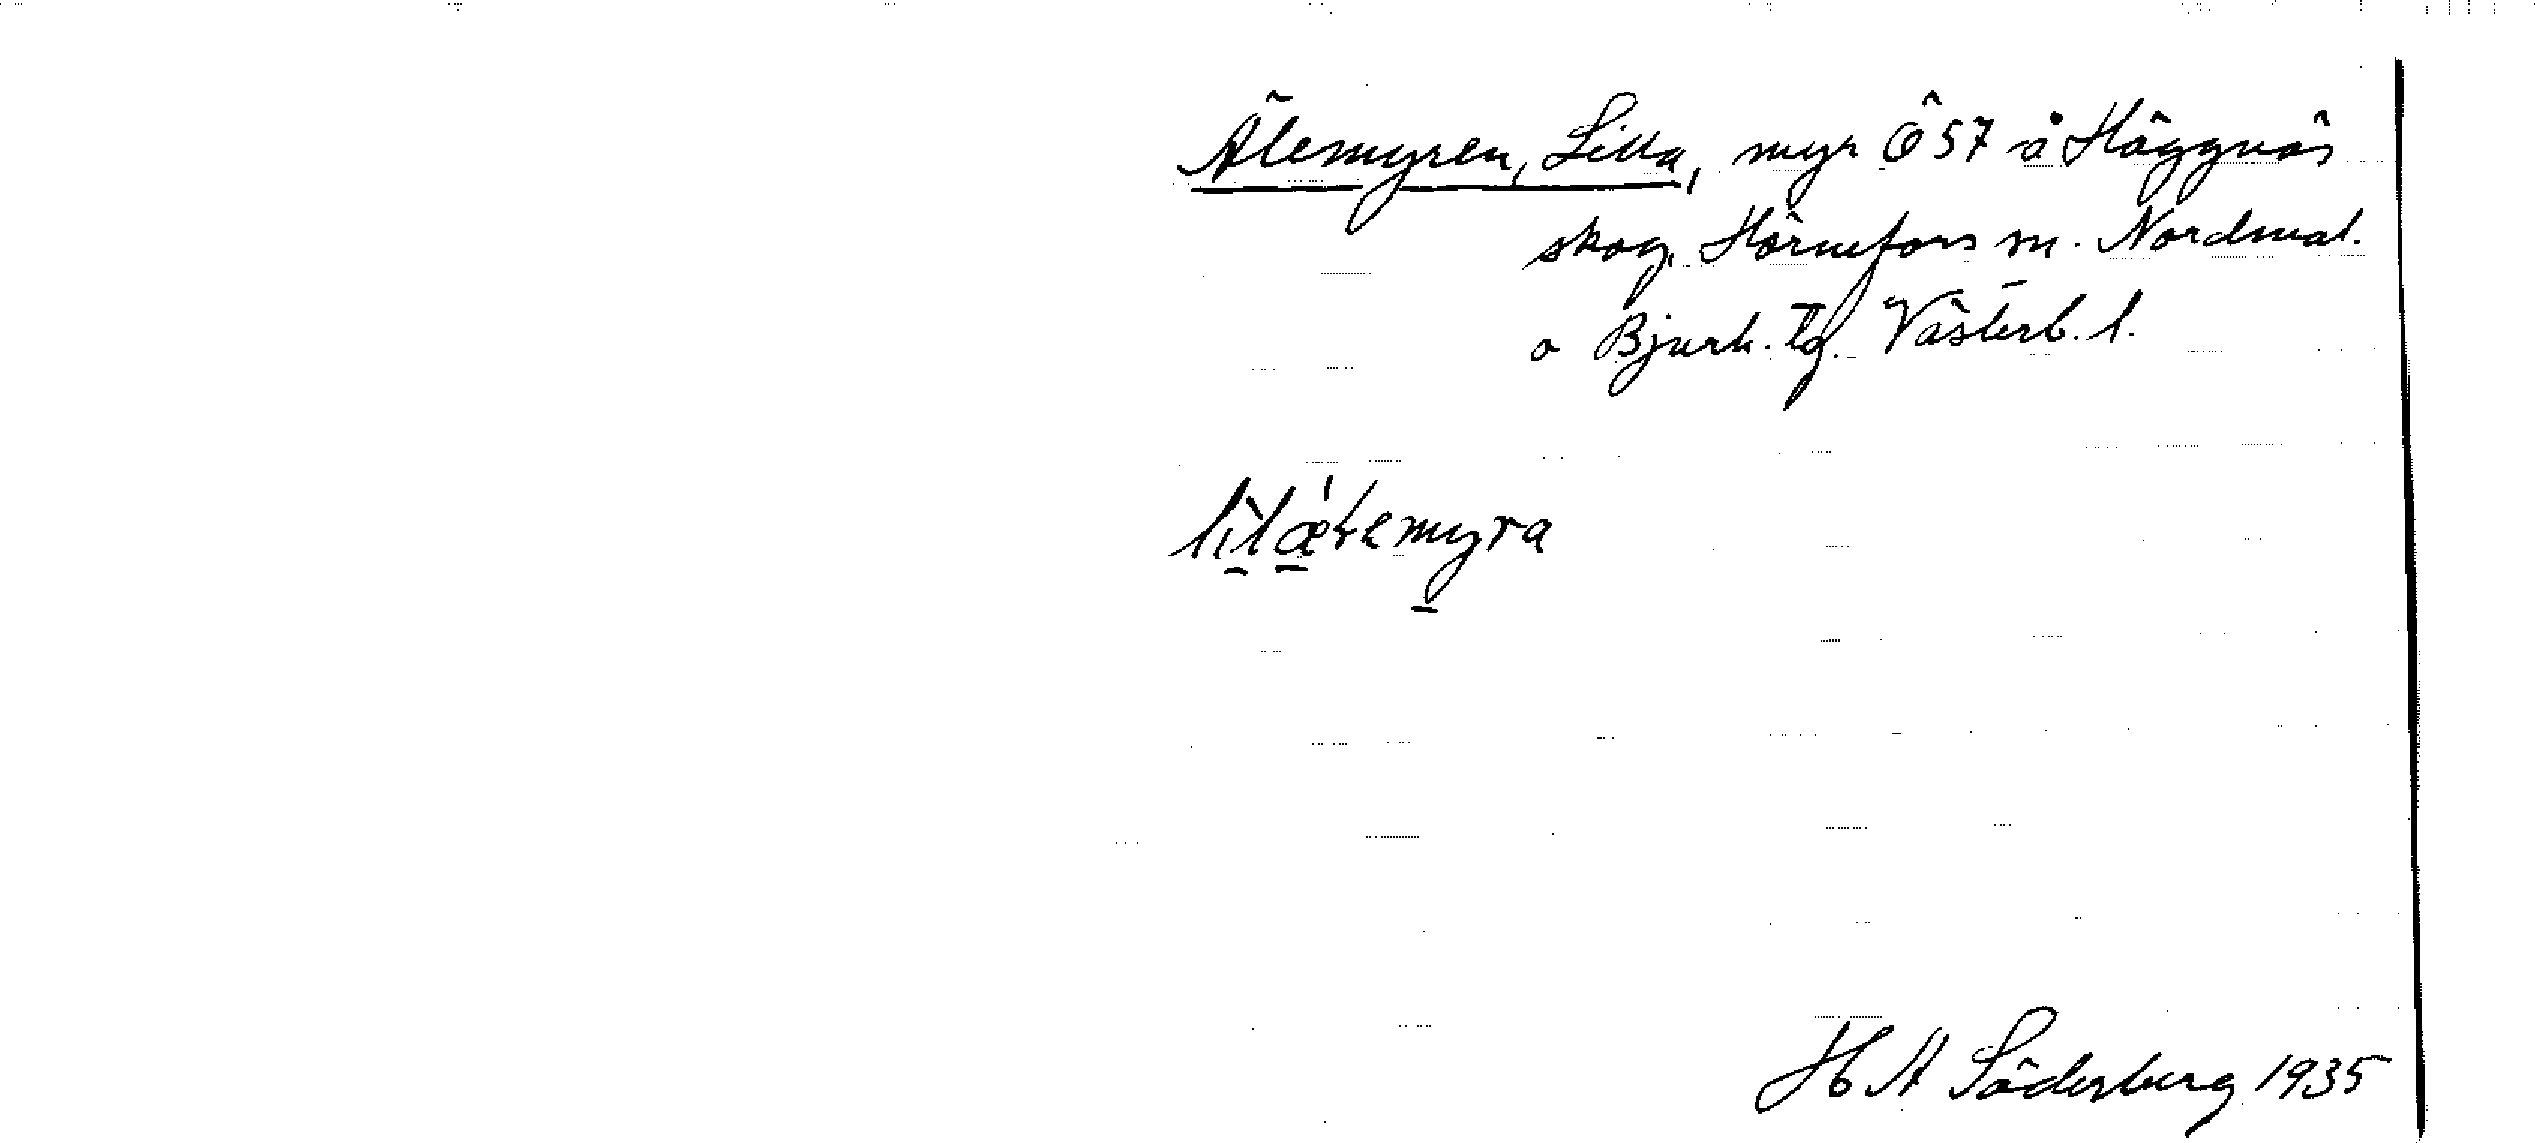 Älemyren, Lilla, myr Ö 57 å Häggnäs
skog, Hörnefors m. Nordmal.
o Bjurh. tg. Västerb. l.
H A Söderberg 1935